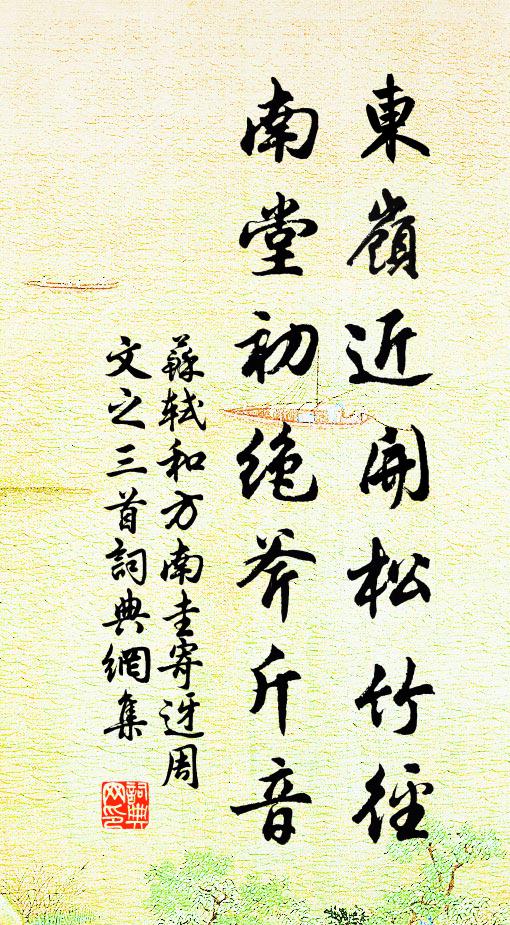 東嶺近開松竹徑
南堂初絶斧斤音
蘇軾和方南圭寄迓周
文之三首詞典網集
詞典网印